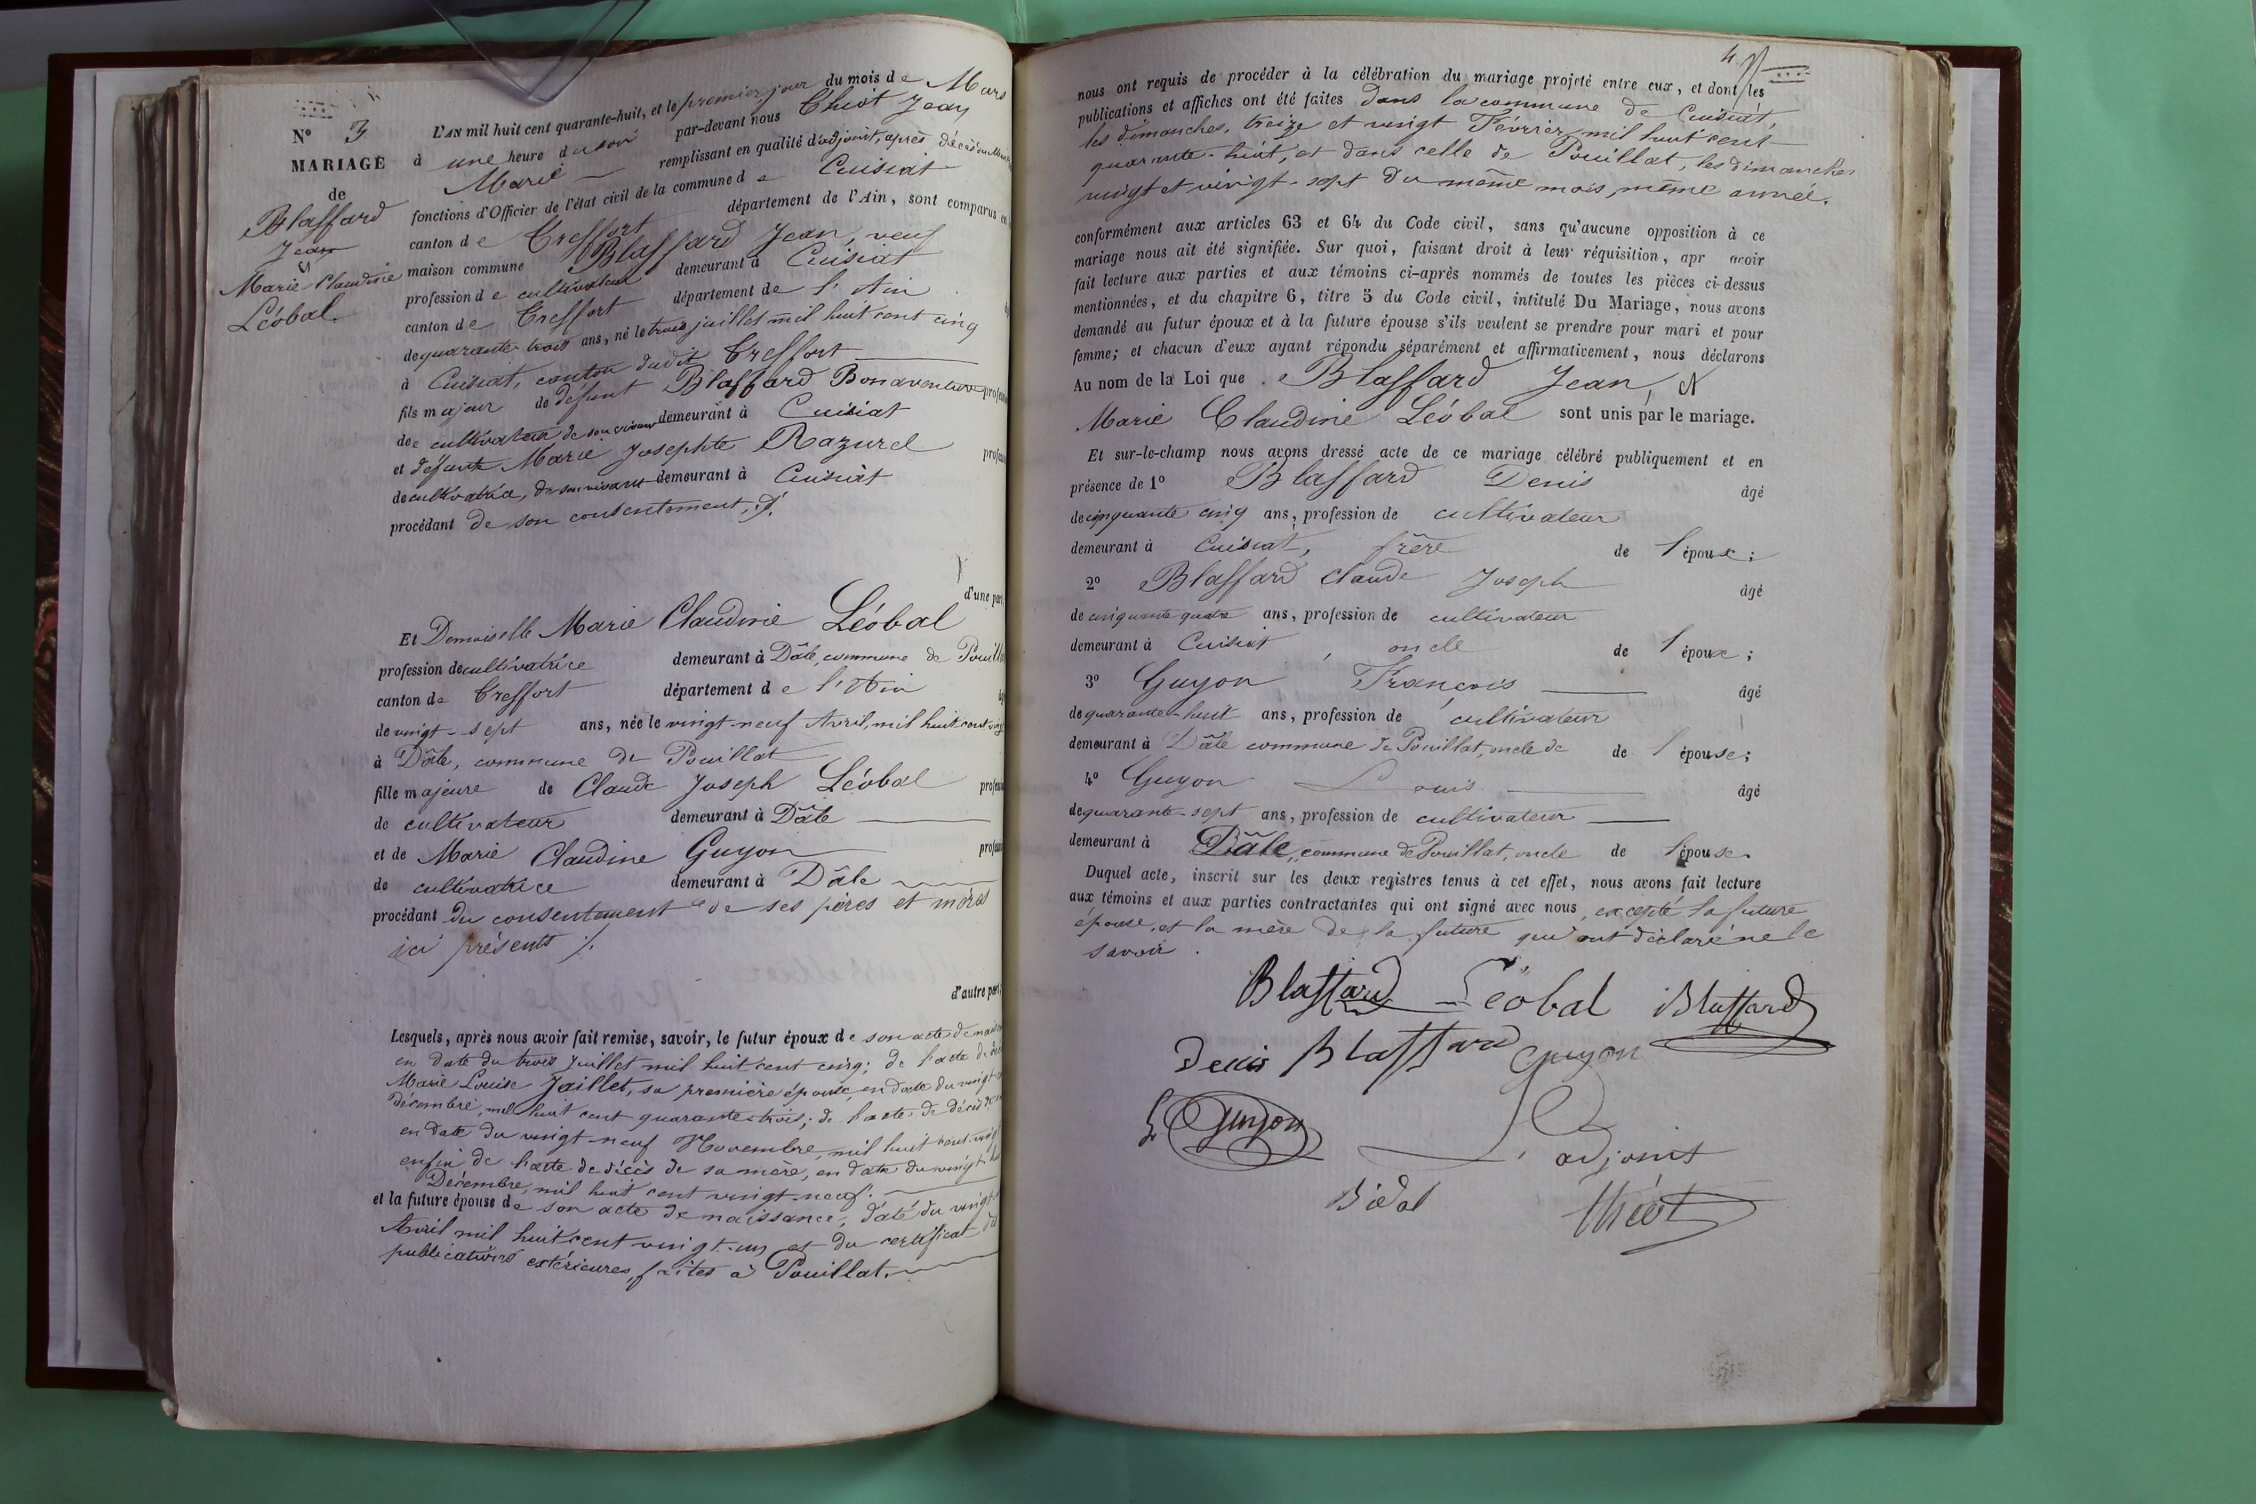 N° 3
MARIAGE
de
Blaffard
Jean
et
Marie Claudine
Léobal.
L'AN mil huit cent quarante-huit, et le premier jour du mois de Mars
à une heure du soir par-devant nous Chiot Jean
Marie remplissant en qualité d'adjoint, après décès du
fonctions d'Officier de l'état civil de la commune de Cuisiat
canton de Treffort département de l'Ain, sont comparus en
maison commune Blaffard Jean, veuf
profession de cultivateur demeurant à Cuisiat
canton de Treffort département de l'Ain
de quarante-trois ans, né le trois juillet mil huit cent cinq
à Cuisiat, canton dudit Treffort
fils majeur de défunt Blaffard Bonaventure
de cultivateur de son vivant demeurant à Cuisiat
et défunte Marie Josephte Razurel
de cultivatrice, de son vivant demeurant à Cuisiat
procédant de son consentement,
d'une part,
Et Demoiselle Marie Claudine Léobal
profession de cultivatrice demeurant à Dâle, commune de
canton de Treffort département de l'Ain
de vingt-sept ans, née le vingt-neuf Avril, mil huit cent
à Dâle, commune de Pouillat
fille majeure de Claude Joseph Léobal
de cultivateur demeurant à Dâle
et de Marie Claudine Guyon
de cultivatrice demeurant à Dâle
procédant du consentement de ses pères et mères
ici présents
d'autre part,
Lesquels, après nous avoir fait remise, savoir, le futur époux de son acte de
en date du trois Juillet mil huit cent cinq; de l'acte de
Marie Louise Jaillet, sa première épouse, en date du vingt
décembre, mil huit cent quarante-trois; de l'acte de décès de
en date du vingt-neuf Novembre, mil huit cent
enfin de l'acte de décès de sa mère, en date du vingt
Décembre, mil huit cent vingt-neuf.
et la future épouse de son acte de naissance, daté du vingt
Avril mil huit cent vingt-un et du certificat
publications extérieures, faites à Pouillat.
4
nous ont requis de procéder à la célébration du mariage projeté entre eux, et dont les
publications et affiches ont été faites dans la commune de Cuisiat,
les dimanches, treize et vingt Février, mil huit cent
quarante-huit, et dans celle de Pouillat, les dimanches
vingt et vingt-sept du même mois, même année.
conformément aux articles 63 et 64 du Code civil, sans qu'aucune opposition à ce
mariage nous ait été signifiée. Sur quoi, faisant droit à leur réquisition, apr avoir
fait lecture aux parties et aux témoins ci-après nommés de toutes les pièces ci-dessus
mentionnées, et du chapitre 6, titre 5 du Code civil, intitulé Du Mariage, nous avons
demandé au futur époux et à la future épouse s'ils veulent se prendre pour mari et pour
femme; et chacun d'eux ayant répondu séparément et affirmativement, nous déclarons
Au nom de la Loi que Blaffard Jean, et
Marie Claudine Léobal sont unis par le mariage.
Et sur-le-champ nous avons dressé acte de ce mariage célébré publiquement et en
présence de 1° Blaffard Denis âgé
de cinquante cinq ans, profession de cultivateur
demeurant à Cuisiat, frère de l'époux;
2° Blaffard Claude Joseph âgé
de cinquante quatre ans, profession de cultivateur
demeurant à Cuisiat, oncle de l'époux;
3° Guyon François âgé
de quarante-huit ans, profession de cultivateur
demeurant à Dâle commune de Pouillat, oncle de de l'épouse;
4° Guyon Louis âgé
de quarante-sept ans, profession de cultivateur
demeurant à Dâle, commune de Pouillat, oncle de l'épouse.
Duquel acte, inscrit sur les deux registres tenus à cet effet, nous avons fait lecture
aux témoins et aux parties contractantes qui ont signé avec nous, excepté la future
épouse, et la mère de la future qui ont déclaré ne le
savoir.
Blaffard Léobal Blaffard
Denis Blaffard Guyon
L Guyon
adjoint
Bidal Chiot